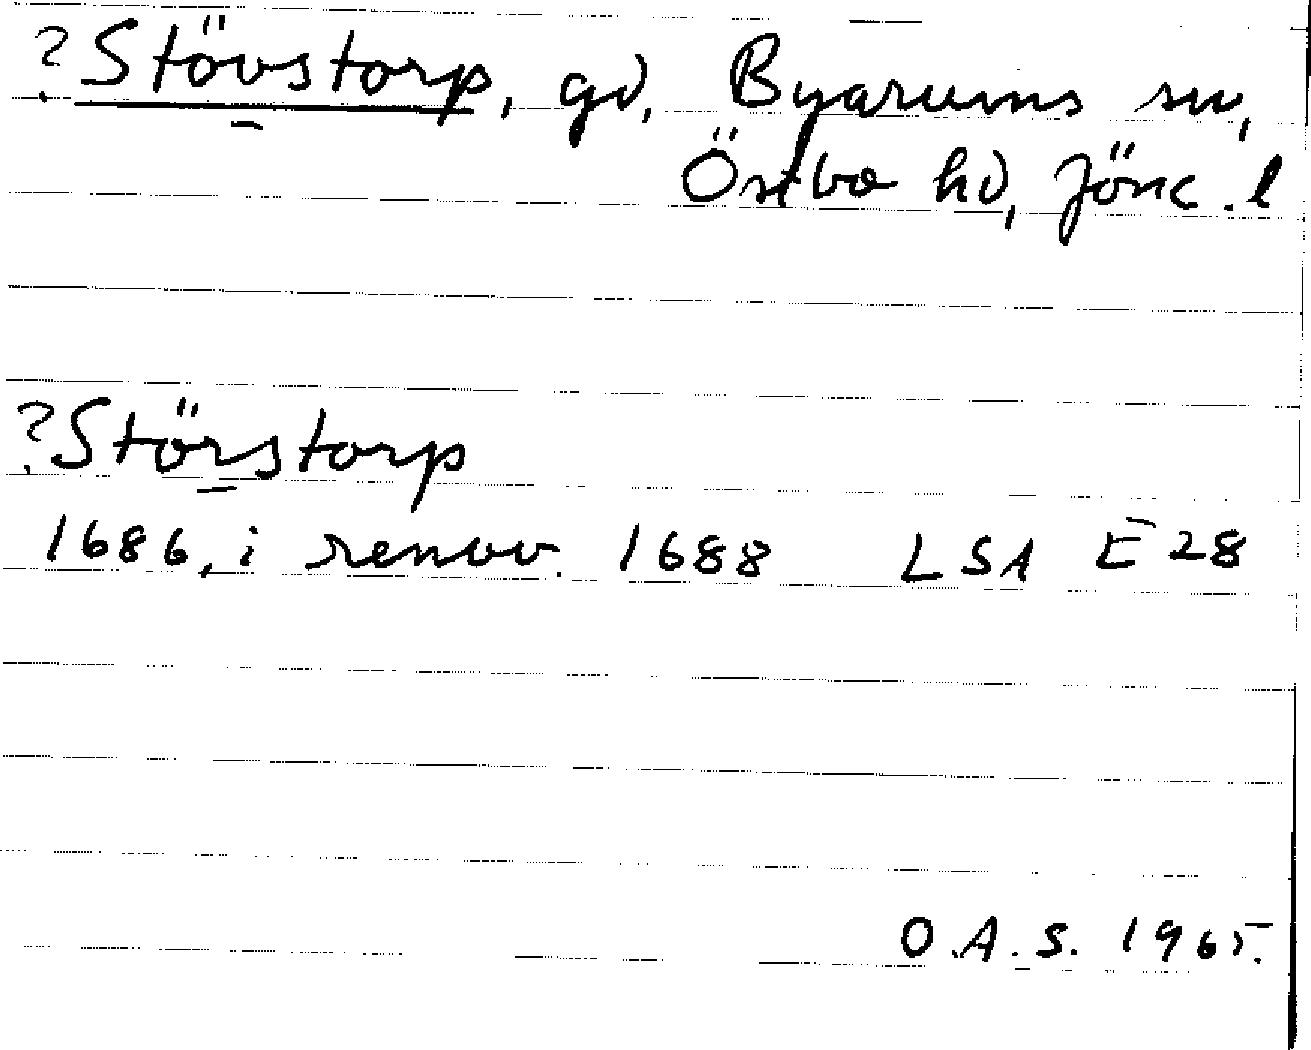 ?Stövstorp, gd, Byarums sn,
Östbo hd, Jönk. l
?Störstorp
1686, i renov. 1688 LSA E 28
O.A.S. 1965.